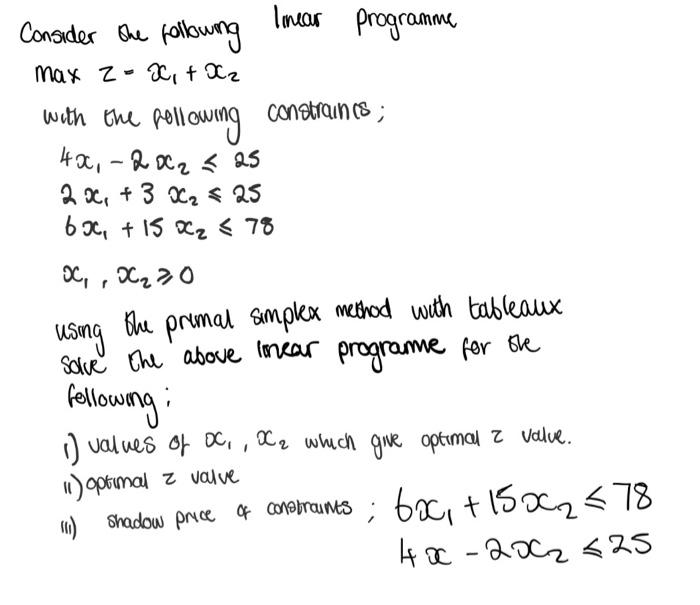 Consider the following linear programme
max z = x₁ + x₂
with the following constraints;
4x₁ - 2x₂ ≤ 25
2x₁ + 3x₂ ≤ 25
6x₁ + 15x₂ ≤ 78
x₁, x₂ ≥ 0
using the primal simplex method with tableaux
solve the above linear programme for the
following;
i) values of x₁, x₂ which give optimal z value.
ii) optimal z value
iii) shadow price of constraints; 6x₁ + 15x₂ ≤ 78
4x - 2x₂ ≤ 25